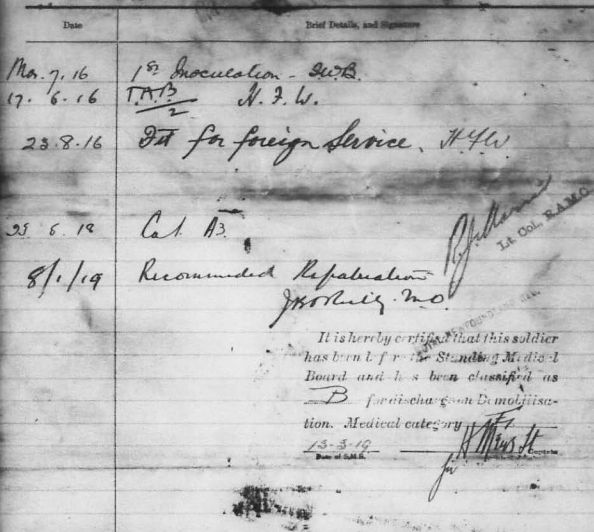 Date Brief Details, and Signature
Mar. 7. 16 1st Inoculation - 
17. 6. 16 T.A.B H. F. W.
2
23.8.16 Fit for foreign Service. H F W
6 18 Cat. A3
Lt. Col. R.A.M.C.
8/1/19 Recommended Repatriation
M.O.
It is hereby certified that this soldier
has been before the Standing Medical
Board and has been classified as
B for discharge on Demobilisa-
tion. Medical category
13-3-19
Date of S.M.B. Captain